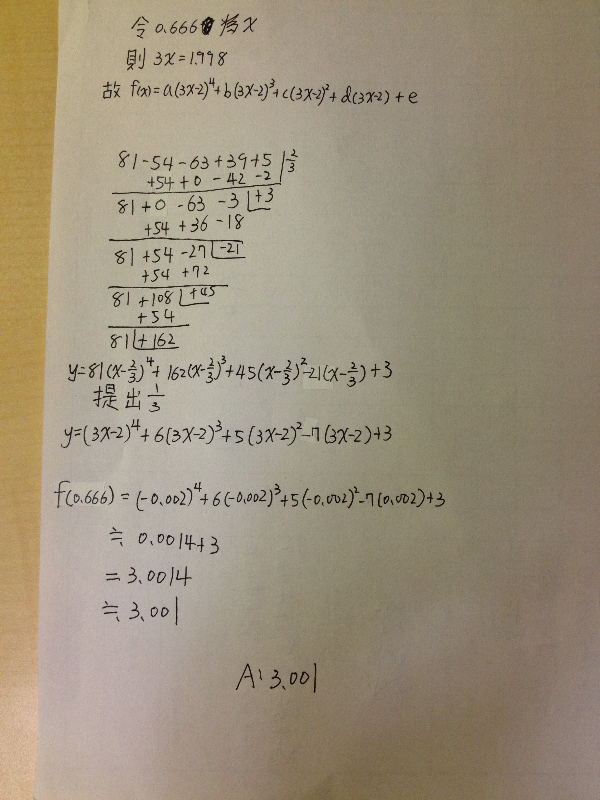 令0.666為x
則 3x=1.998
故 f(x)=a(3x-2)⁴+b(3x-2)³+c(3x-2)²+d(3x-2)+e
81-54-63+39+5 | 2/3
+54+0-42-2
81+0-63-3 | +3
+54+36-18
81+54-27 | -21
+54+72
81+108 | +45
+54
81 | +162
y=81(x-2/3)⁴+162(x-2/3)³+45(x-2/3)²-21(x-2/3)+3
提出 1/3
y=(3x-2)⁴+6(3x-2)³+5(3x-2)²-7(3x-2)+3
f(0.666)=(-0.002)⁴+6(-0.002)³+5(-0.002)²-7(0.002)+3
≒ 0.0014+3
=3.0014
≒3.001
A:3.001